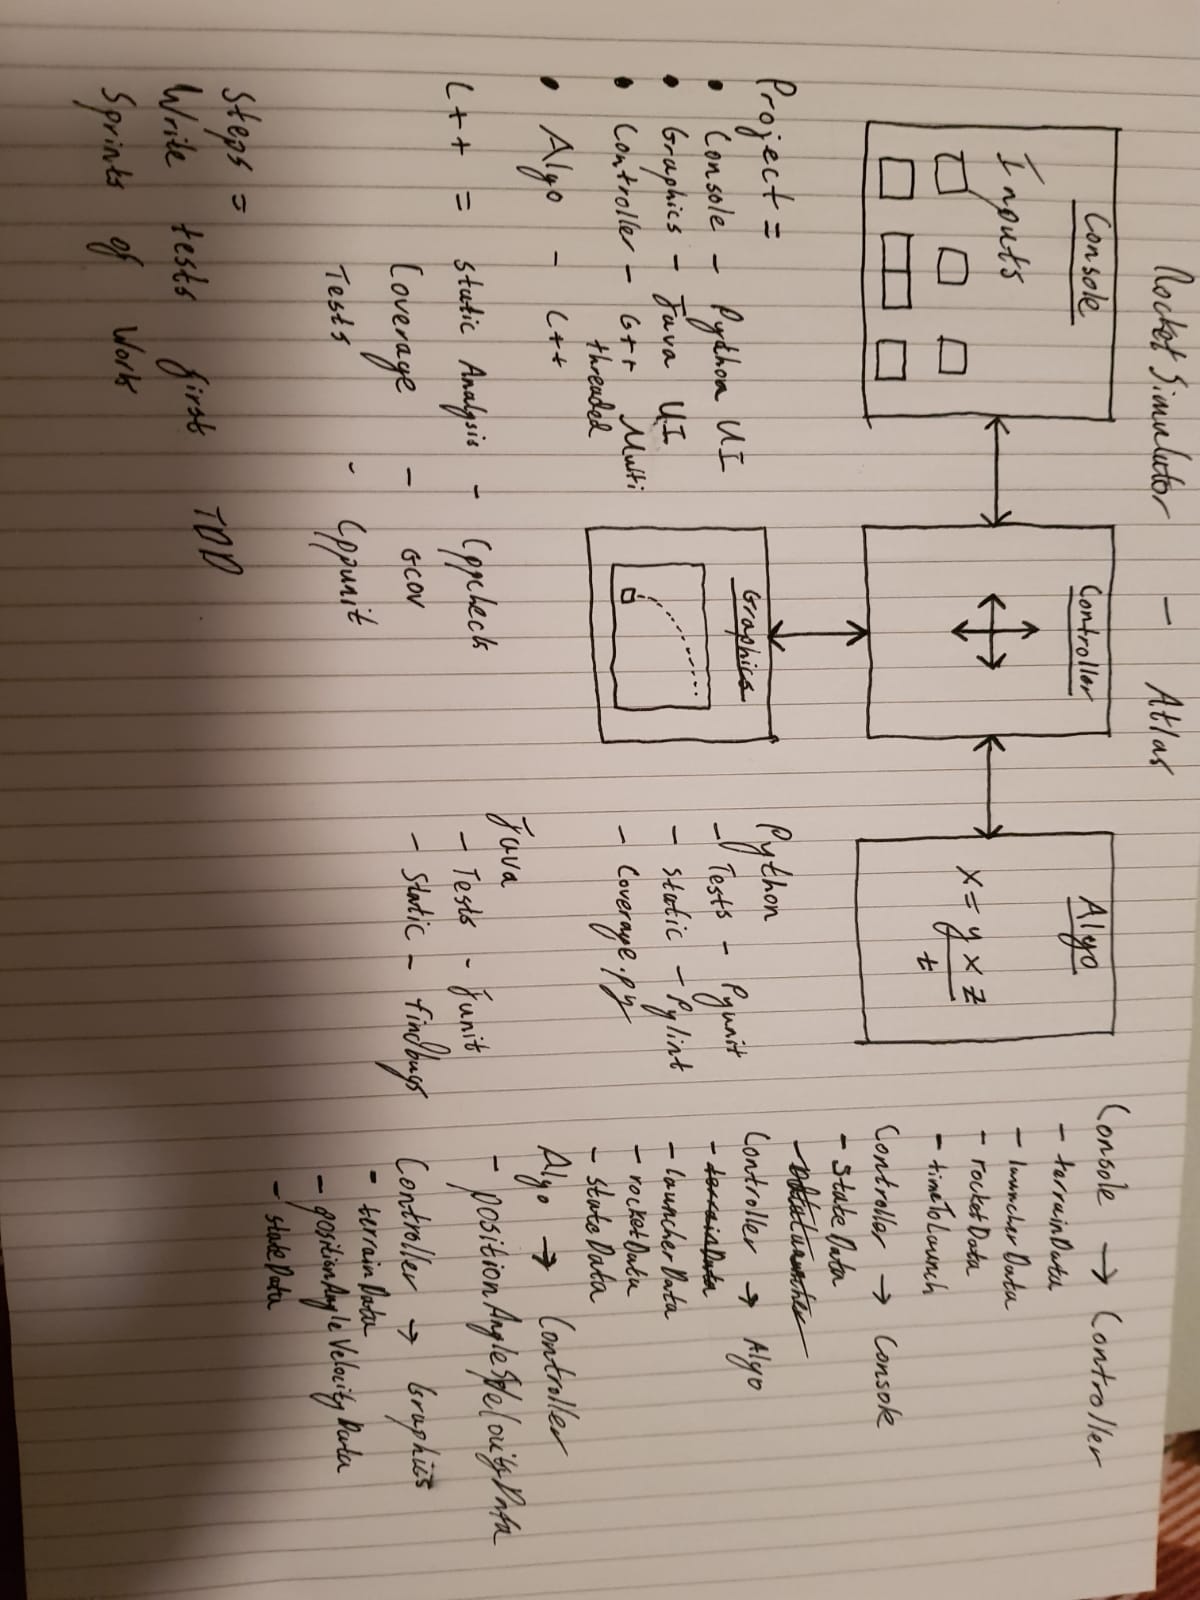 Rocket Simulator - Atlas
Console
Inputs
Controller
Algo
x = y x z
t
Graphics
Project =
• Console - Python UI
• Graphics - Java UI
• Controller - C++ Multi
threaded
• Algo - C++
C++ = Static Analysis - Cppcheck
Coverage - GCOV
Tests - Cppunit
Steps =
Write tests first TDD
Sprints of Work
Python
- Tests - Pyunit
- Static - Pylint
- Coverage.py
Java
- Tests - Junit
- Static - findbugs
Console → Controller
- terrainData
- launcherData
- rocketData
- timeToLaunch
Controller → Console
- stateData
Controller → Algo
- terrainData
- launcherData
- rocketData
- stateData
Algo → Controller
- positionAngleVelocityData
Controller → Graphics
- terrainData
- positionAngleVelocityData
- stateData